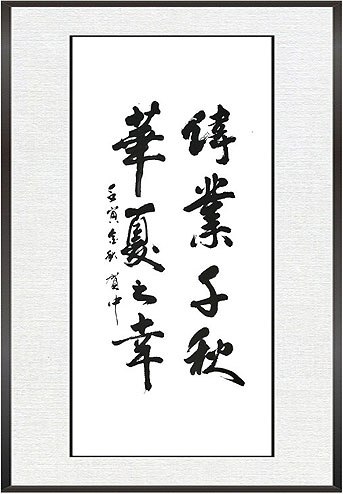 偉業千秋
華夏之幸
壬寅金秋 賀中